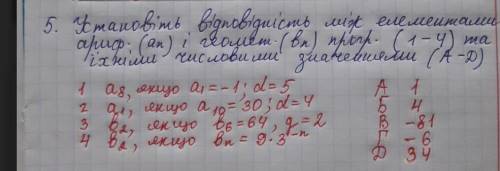 5. Установіть відповідність між елементами
ариф. (an) і геомет. (bn) прогр. (1-4) та
їхніми числовими значеннями (А-Д)
1 a8, якщо a1=-1; d=5 А 1
2 a1, якщо a10=30; d=4 Б 4
3 b2, якщо b6=64, q=2 В -81
4 b2, якщо bn=9·3^-n Г -6
Д 34